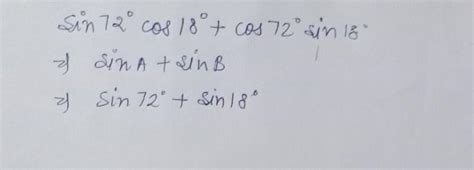 sin 72° cos 18° + cos 72° sin 18°
⇒ sin A + sin B
⇒ sin 72° + sin 18°